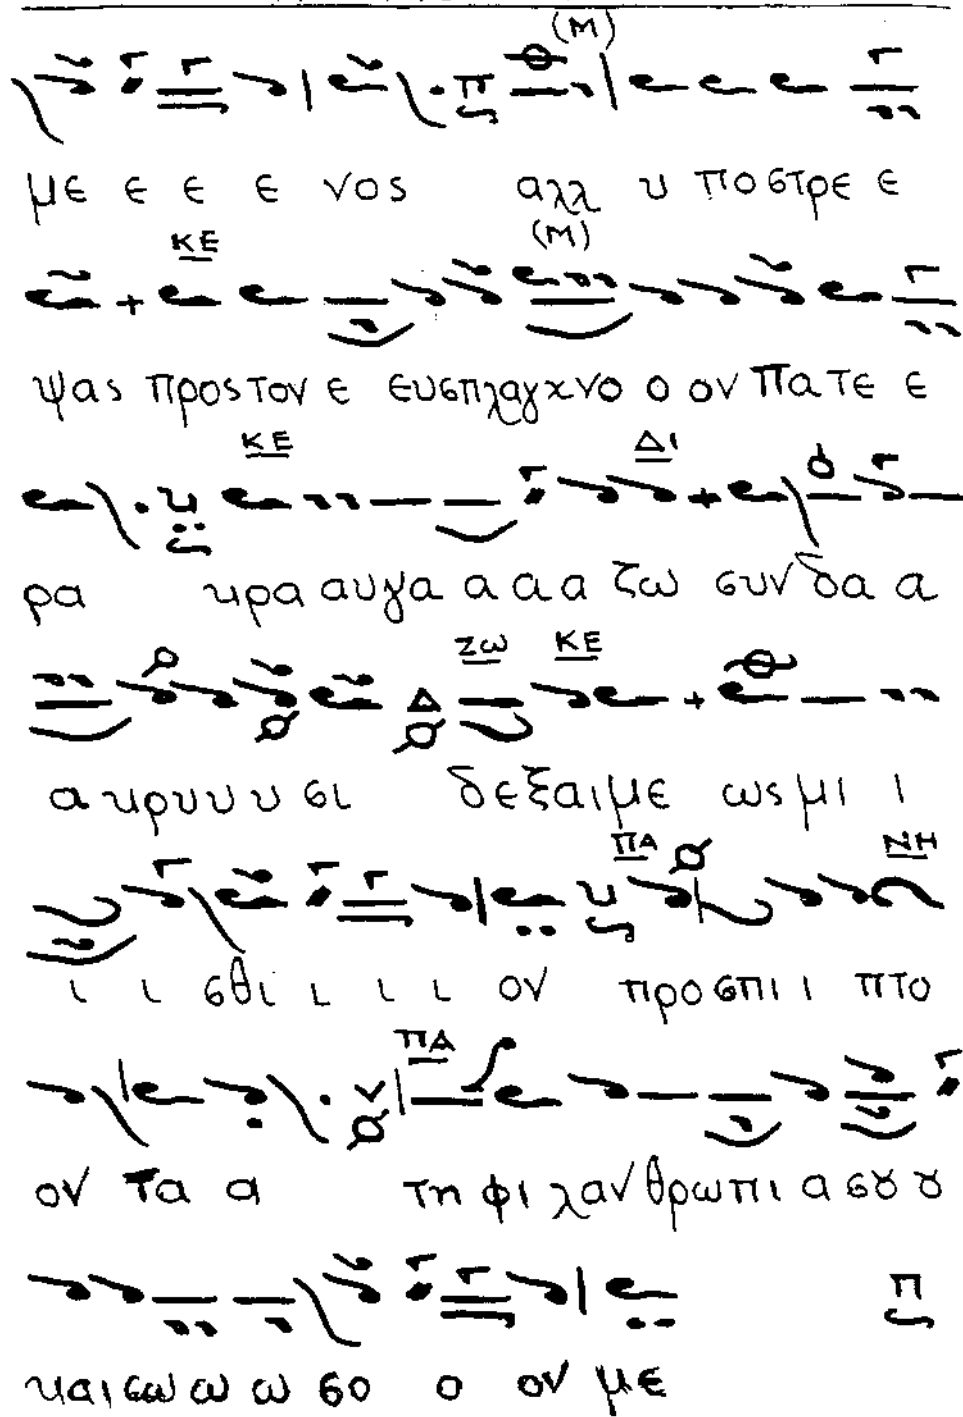 (Μ)
με ε ε ε νος αλλ υ ποστρε ε
ΚΕ (Μ)
ψας προς τον ε ευσπλαγχνο ο ον Πατε ε
ΚΕ Δι
ρα κρα αυγα α α α ζω συν δα α
Ζω ΚΕ
α κρυ υ υ σι δεξαι με ως μι ι
ΠΑ ΝΗ
ι ι σθι ι ι ι ον προσπι ι πτο
ΠΑ
ον τα α τη φιλανθρωπι α σȣ ȣ
και σω ω ω σο ο ον με